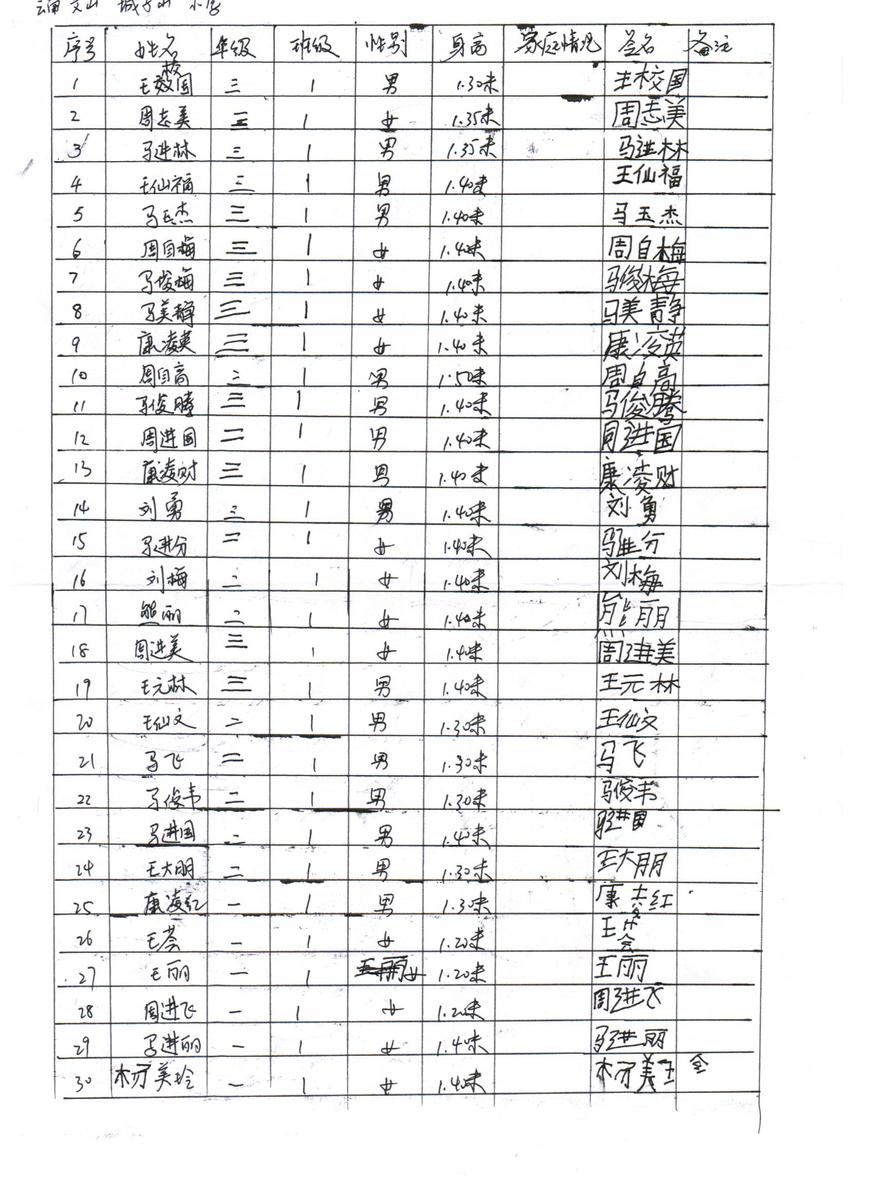 云南 文山 城子山 小学
序号 姓名 年级 班级 性别 身高 家庭情况 签名 备注
1 王校国 三 1 男 1.30米 王校国
2 周志美 三 1 女 1.35米 周志美
3 马进林 三 1 男 1.35米 马进林
4 王仙福 三 1 男 1.40米 王仙福
5 马玉杰 三 1 男 1.40米 马玉杰
6 周自梅 三 1 女 1.40米 周自梅
7 马俊梅 三 1 女 1.40米 马俊梅
8 马美静 三 1 女 1.40米 马美静
9 康凌英 三 1 女 1.40米 康凌英
10 周自高 二 1 男 1.50米 周自高
11 马俊腾 三 1 男 1.40米 马俊腾
12 周进国 二 1 男 1.40米 周进国
13 康凌财 三 1 男 1.40米 康凌财
14 刘勇 二 1 男 1.40米 刘勇
15 马进分 二 1 女 1.40米 马进分
16 刘梅 二 1 女 1.40米 刘梅
17 熊丽 二 1 女 1.40米 熊丽
18 周进美 三 1 女 1.40米 周进美
19 王元林 三 1 男 1.40米 王元林
20 王仙文 二 1 男 1.30米 王仙文
21 马飞 二 1 男 1.30米 马飞
22 马俊韦 二 1 男 1.30米 马俊韦
23 马进国 二 1 男 1.40米 马进国
24 王大朋 二 1 男 1.30米 王大朋
25 康凌红 一 1 男 1.30米 康 红
26 王荟 一 1 女 1.20米 王荟
27 王丽 一 1 女 1.20米 王丽
28 周进飞 一 1 女 1.20米 周进飞
29 马进丽 一 1 女 1.4米 马进丽
30 美玲 一 1 女 1.40米 美玲